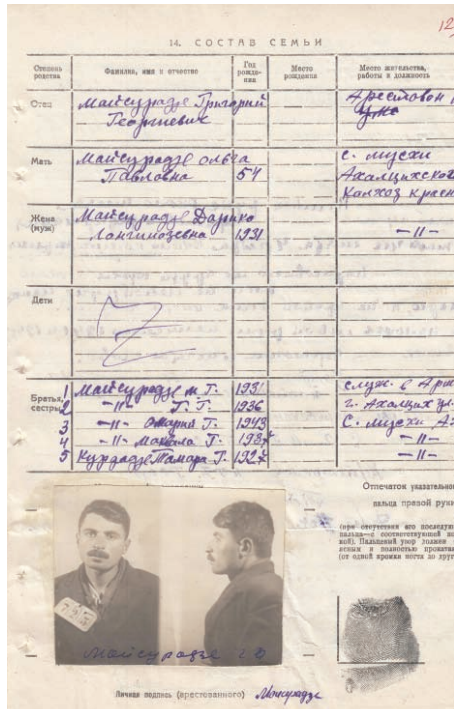 14. СОСТАВ СЕМЬИ
Степень родства
Фамилия, имя и отчество
Год рожде-
ния
Место рождения
Место жительства, работы и должность
Отец
Майсурадзе Григорий
Георгиевич
Арестован
Мать
Майсурадзе Ольга
Павловна 54
с. Мусхи
Ахалцихского
Колхоз красн
Жена (муж)
Майсурадзе Дарико
Лонгинозевна 1931
-II-
Дети
Братья, сестры
1 Майсурадзе М. Г. 1931 служ. в Арм
2 -II- Г. Г. 1936 г. Ахалцих ул.
3 -II- Омарий Г. 1943 С. Мусхи
4 -II- Маквала Г. -II-
5 Курдадзе Тамара Г. 1927 -II-
Отпечаток указательног
пальца правой руки
(при отсутствии его последую
пальца—с соответствующей
кой). Пальцевый узор должен
ясным и полностью прокатан
(от одной кромки ногтя до друг
Майсурадзе
Личная подпись (арестованного) Майсурадзе